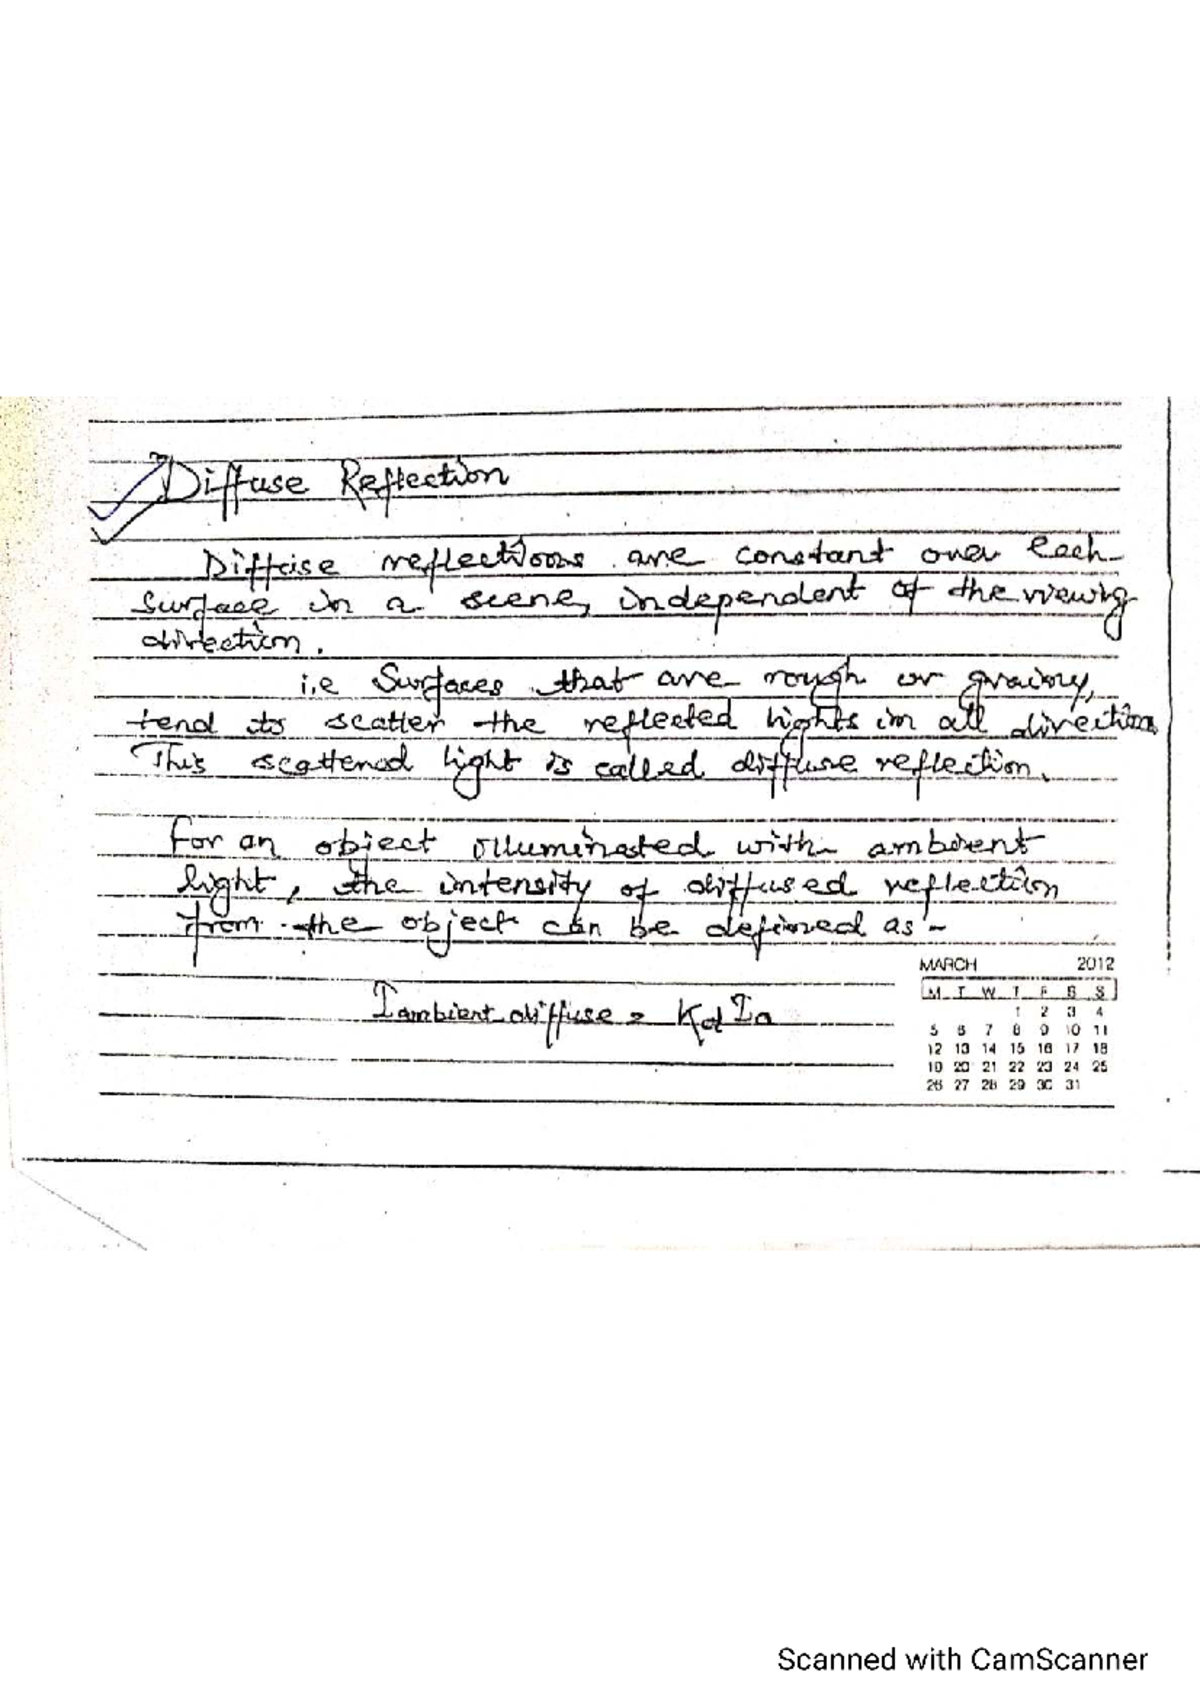 Diffuse Reflection
Diffuse reflections are constant over each
surface in a scene, independent of the viewing
direction.
i.e Surfaces that are rough or grainy,
tend to scatter the reflected lights in all direction
This scattered light is called diffuse reflection.
For an object illuminated with ambient
light, the intensity of diffused reflection
from the object can be defined as -
I ambient diffuse = Kd Ia
MARCH 2012
M T W T F S S
1 2 3 4
5 6 7 8 9 10 11
12 13 14 15 16 17 18
19 20 21 22 23 24 25
26 27 28 29 30 31
Scanned with CamScanner